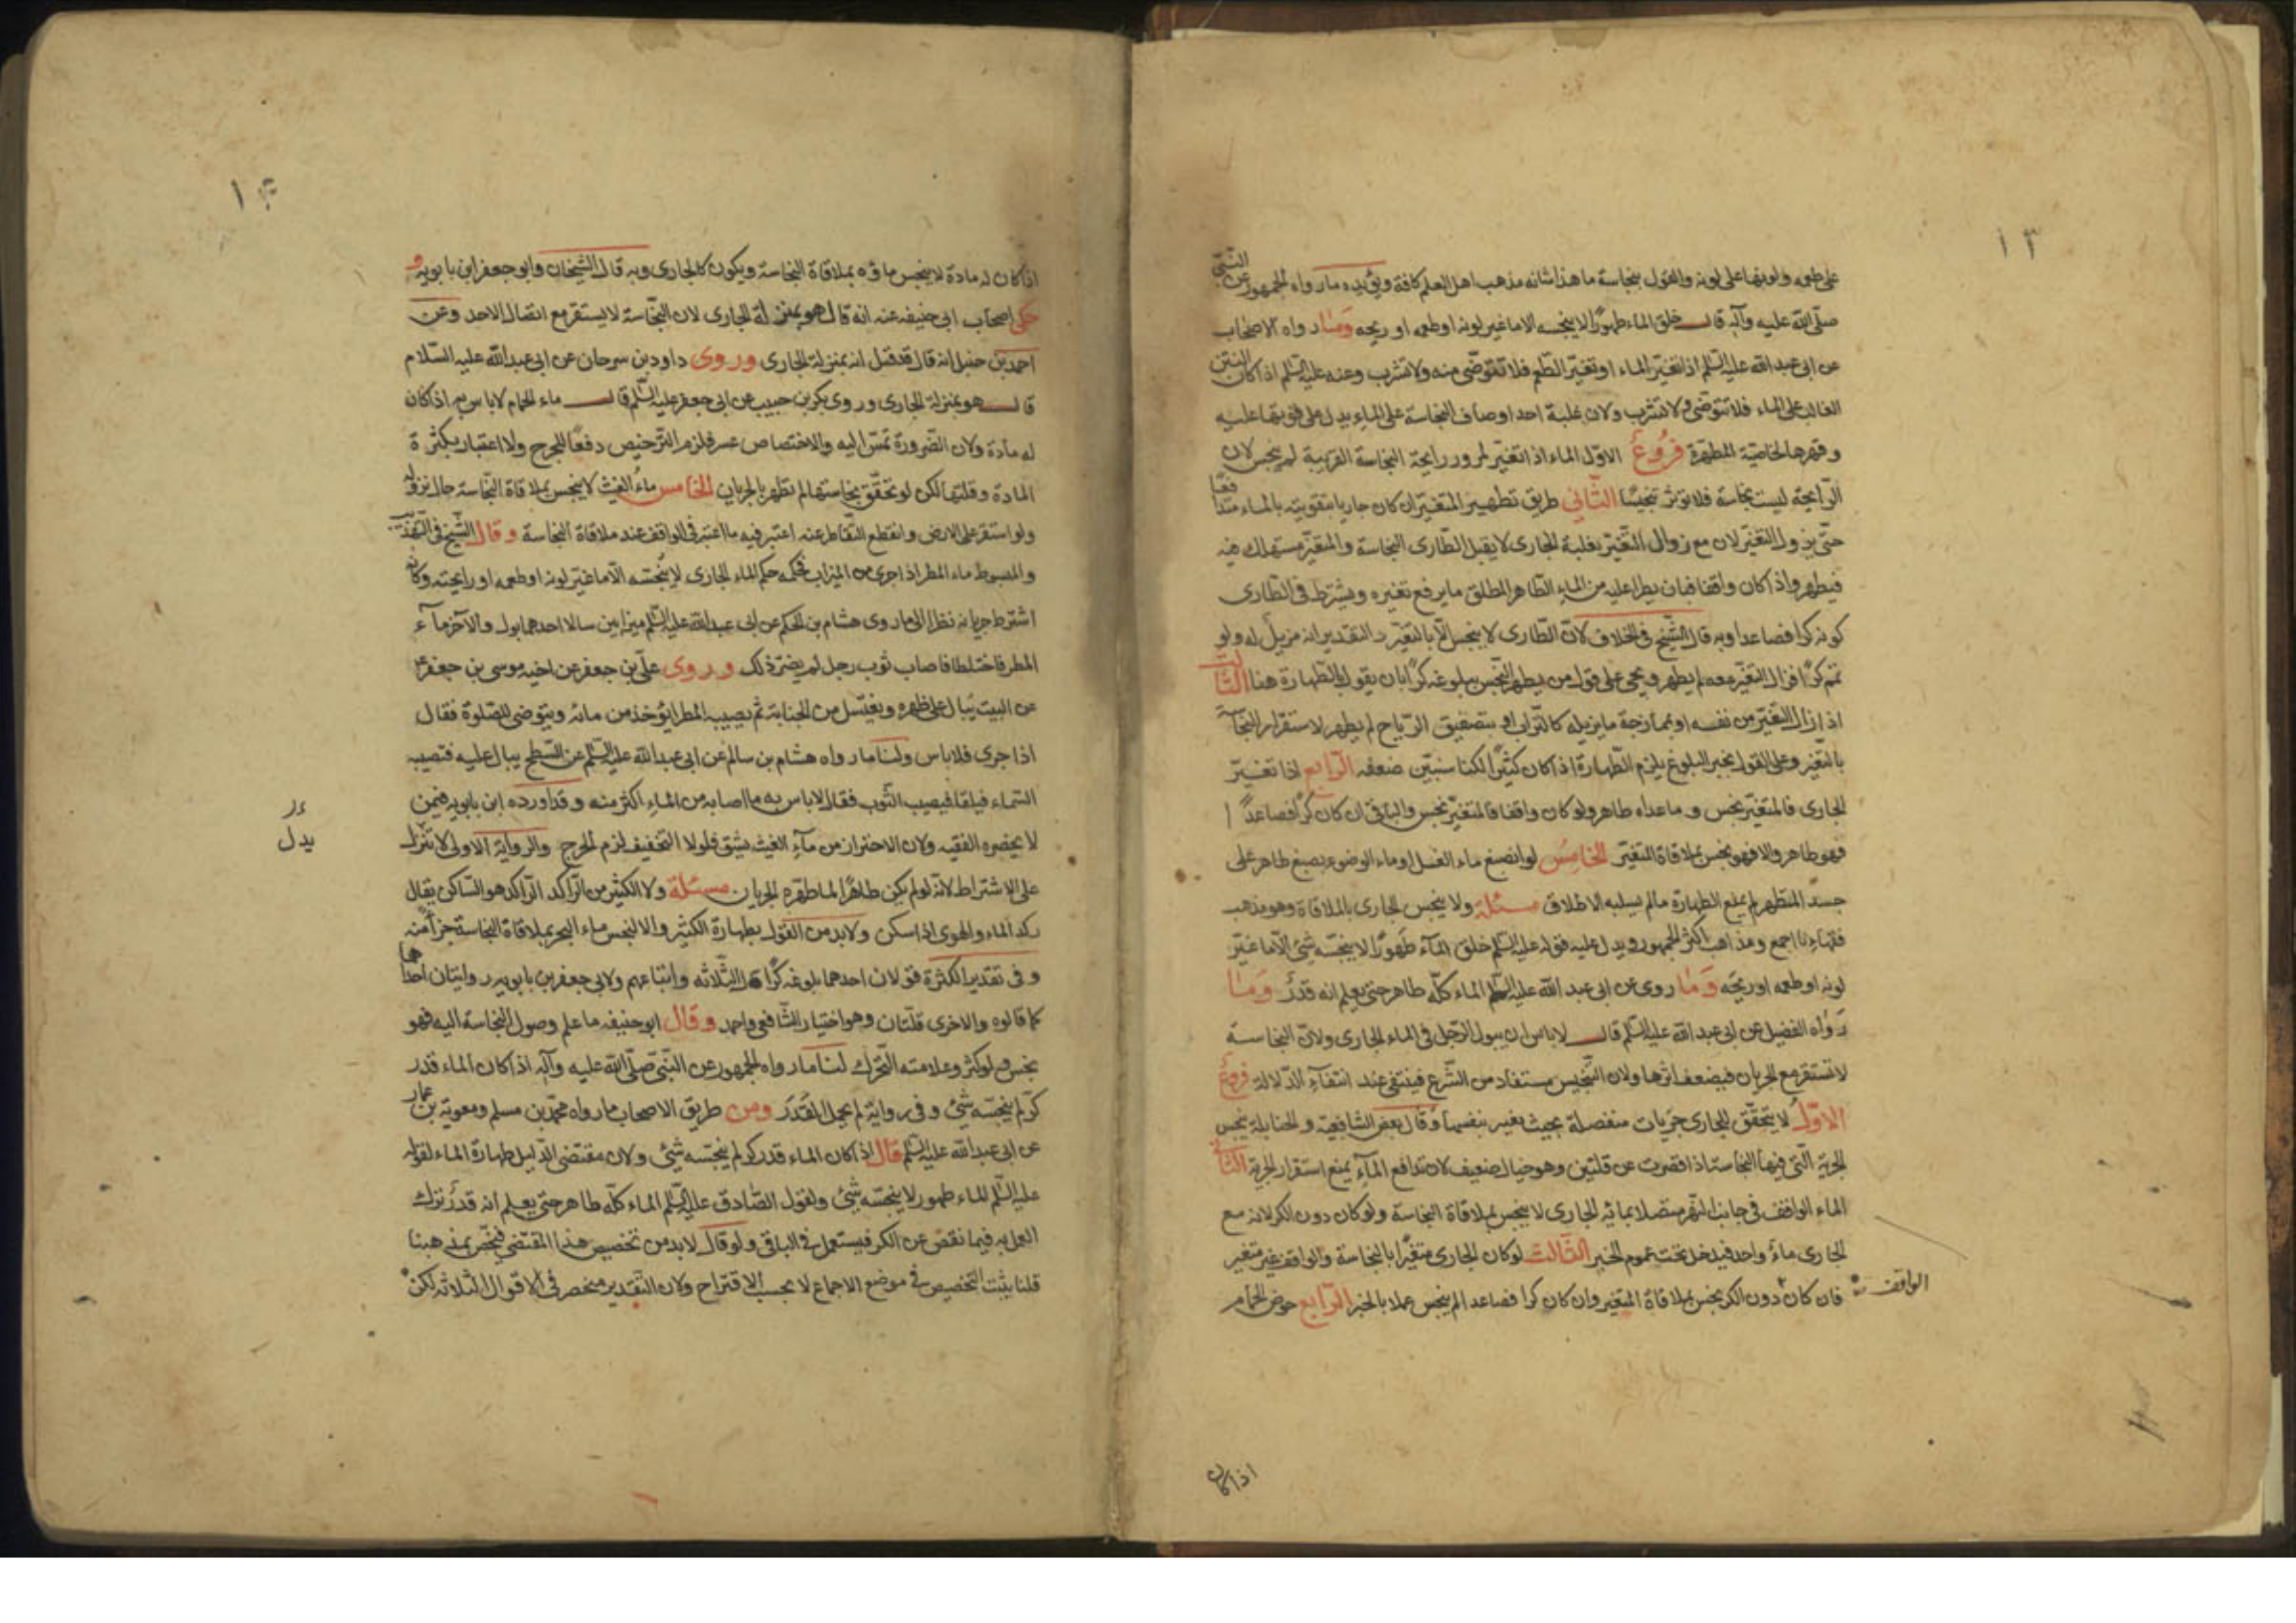 ١٣
على طعمه ولونها على لونه والقول بنجاسة ما هذا شانه مذهب اهل العلم كافة ويؤيده ما رواه الجمهور عن النبي
صلى الله عليه وآله قال خلق الماء طهورا لا ينجسه الا ما غير لونه او طعمه او ريحه وما رواه الاصحاب
عن ابي عبد الله عليه السلم اذا تغير الماء او تغير الطعم فلا تتوضى منه ولا تشرب وعنه عليه السلم اذا كان النتن
الغالب على الماء فلا تتوضى ولا تشرب ولان غلبة احد اوصاف النجاسة على الماء يدل على قوتها عليه
وقهرها لخاصيته المطهرة فروع الاول الماء اذا تغير لمرور رايحة النجاسة القريبة لم ينجس لان
الرايحة ليست نجاسة فلا تؤثر تنجيسا الثاني طريق تطهير المتغير ان كان جاريا بتقويته بالماء متدافعا
حتى يزول التغير لان مع زوال التغير بغلبة الجارى لا يقبل الطارى النجاسة والمتغير مستهلك فيه
فيطهر واذا كان واقفا فبان يطرا عليه من الماء الطاهر المطلق ما يرفع تغيره ويشترط فى الطارى
كونه كرا فصاعدا وبه قال الشيخ في الخلاف لان الطارى لا ينجس الا بالتغير والتقدير انه مزيل له ولو
تمم كرا فزال التغير معه لم يطهر ويجي على قول من يطهر النجس ببلوغه كرا بان يقول بالطهارة هنا الثالث
اذا زال التغير من نفسه او بممازجة ما يزيله كالتراب او بتصفيق الرياح لم يطهر لاستقرار النجاسة
بالتغير وعلى القول بخبر البلوغ يلزم الطهارة اذا كان كثيرا لكنا سنبين ضعفه الرابع اذا تغير
الجارى فالمتغير نجس وما عداه طاهر ولو كان واقفا فالمتغير نجس والباقى ان كان كرا فصاعدا
فهو طاهر والا فهو نجس بملاقاة المتغير الخامس لو انصبغ ماء الغسل او ماء الوضوء بصبغ طاهر على
جسد المتطهر لم يمنع الطهارة ما لم يسلبه الاطلاق مسئلة ولا ينجس الجارى بالملاقاة وهو مذهب
فقهاءنا اجمع ومذاهب اكثر الجمهور ويدل عليه قوله عليه السلم خلق الماء طهورا لا ينجسه شئ الا ما غير
لونه او طعمه او ريحه وما روى عن ابى عبد الله عليه السلم الماء كله طاهر حتى يعلم انه قذر وما
رواه الفضيل عن ابى عبد الله عليه السلم قال لا باس ان يبول الرجل فى الماء الجارى ولان النجاسة
لا تستقر مع الجريان فيضعف اثرها ولان التنجيس مستفاد من الشرع فينتفى عند انتفاء الدلالة فروع
الاول لا يتحقق للجارى جريات منفصلة بحيث يعتبر بنفسها وقال بعض الشافعية والحنابلة ينجس
الجرية التى فيها النجاسة اذا قصرت عن قلتين وهو خيال ضعيف لان تدافع الماء يمنع استقرار الجرية الثانى
الماء الواقف فى جانب النهر متصلا بمائه الجارى لا ينجس بملاقاة النجاسة ولو كان دون الكر لانه مع
الجارى ماء واحد فيدخل تحت عموم الخبر الثالث لو كان الجارى متغيرا بالنجاسة والواقف غير متغير
فان كان دون الكر نجس بملاقاة المتغير وان كان كرا فصاعدا لم ينجس عملا بالخبر الرابع حوض الحمام
الواقف
اذا كان
اذا كان له مادة لا ينجس ماؤه بملاقاة النجاسة ويكون كالجارى وبه قال الشيخان وابو جعفر ابن بابويه و
حكى اصحاب ابى حنيفه عنه انه قال هو بمنزلة الجارى لان النجاسة لا يستقر مع اتصال الاحد وعن
احمد بن حنبل انه قال قد قيل انه بمنزلة الجارى وروى داود بن سرحان عن ابى عبد الله عليه السلام
قال هو بمنزلة الجارى وروى بكر بن حبيب عن ابى جعفر عليه السلم قال ماء الحمام لا باس به اذا كان
له مادة ولان الضرورة تمس اليه والاختصاص عسر فلزم الترخيص دفعا للحرج ولا اعتبار بكثرة
المادة وقلتها لكن لو تحقق نجاستها لم تطهر بالجريان الخامس ماء الغيث لا ينجس بملاقاة النجاسة حال نزوله
ولو استقر على الارض وانقطع التقاطر عنه اعتبر فيه ما اعتبر فى الواقف عند ملاقاة النجاسة وقال الشيخ فى التهذيب
والمبسوط ماء المطر اذا جرى من الميزاب فحكمه حكم الماء الجارى لا ينجسه الا ما غير لونه او طعمه او رايحته وكانه
اشترط جريانه نظرا الى ما روى هشام بن الحكم عن ابى عبد الله عليه السلم ميزابين سالا احدهما بول والآخر ماء
المطر فاختلطا فاصاب ثوب رجل لم يضر ذلك وروى على بن جعفر عن اخيه موسى بن جعفر ع
عن البيت يبال على ظهره ويغتسل من الجنابة ثم يصيبه المطر ايؤخذ من مائه ويتوضى للصلوة فقال
اذا جرى فلا باس ولنا ما رواه هشام بن سالم عن ابى عبد الله عليه السلم عن السطح يبال عليه فتصيبه
السماء فيلقا فيصيب الثوب فقال لا باس به ما اصابه من الماء اكثر منه وقد اورده ابن بابويه فيمن
لا يحضره الفقيه ولان الاحتراز من ماء الغيث يشق فلولا التخفيف لزم الحرج والرواية الاولى لا تنزل
يدل
على الاشتراط لانه لو لم يكن طاهرا لما طهره الجريان مسئلة ولا الكثير من الراكد الراكد هو الساكن يقال
ركد الماء والهوى اذا سكن ولا بد من القول بطهارة الكثير والا لنجس ماء البحر بملاقاة النجاسة جزأ منه
وفى تقدير الكثرة قولان احدهما بلوغه كرا قاله الثلاثه واتباعهم ولابى جعفر بن بابويه روايتان احداهما
كما قالوه والاخرى قلتان وهو اختيار الشافعى واحمد وقال ابو حنيفه ما علم وصول النجاسة اليه فهو
نجس ولو كثر وعلامته التحرك لنا ما رواه الجمهور عن النبى صلى الله عليه وآله اذا كان الماء قدر
كر لم ينجسه شئ وفى رواية لم يحمل القذر ومن طريق الاصحاب ما رواه محمد بن مسلم ومعوية بن عمار
عن ابى عبد الله عليه السلم قال اذا كان الماء قدر كر لم ينجسه شئ ولان مقتضى الدليل طهارة الماء لقوله
عليه السلم الماء طهور لا ينجسه شئ ولقول الصادق عليه السلم الماء كله طاهر حتى يعلم انه قذر نزك
العمل به فيما نقص عن الكر فيستعمل فى الباقى ولو قال لا بد من تخصيص هذا المقتضى فيخص بمذهبنا
قلنا يثبت التخصيص فى موضع الاجماع لا بحسب الاقتراح ولان التقدير منحصر فى الاقوال الثلاثه لكن